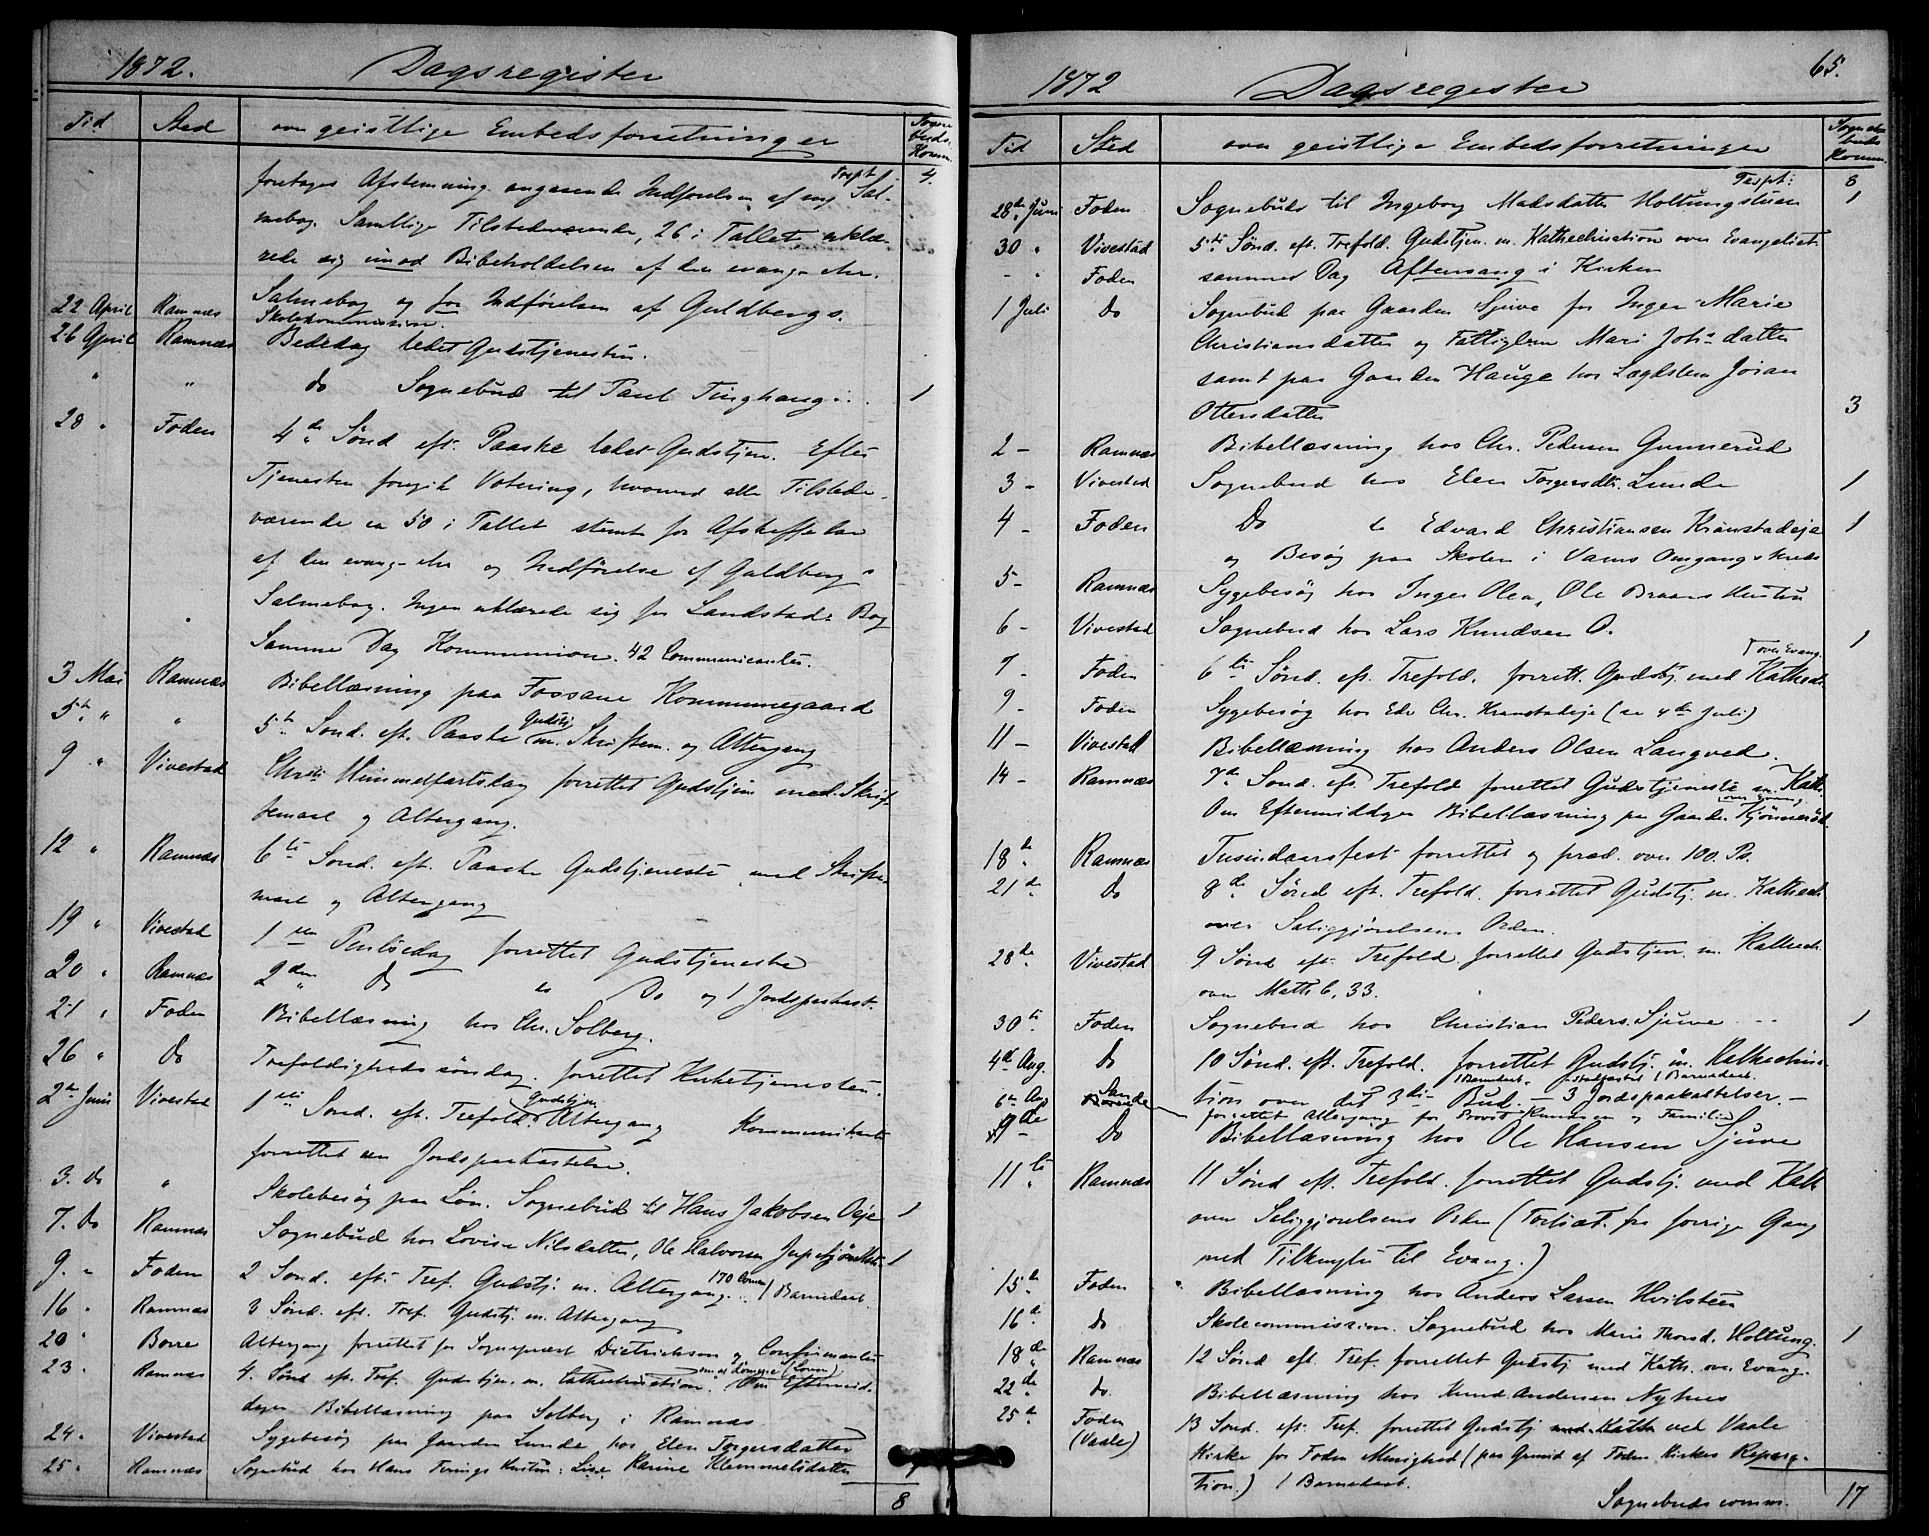 1872.
Dagsregister
Tid
Sted
over geistlige Embedsforretninger
Sognebuds Komm.
Trspt 4.
foretoges Afstemning angaaende Indførelsen af ny Sal-
mebog. Samtlige Tilstedeværende, 26 i Tallet erklæ-
rede sig imod Bibeholdelsen af den evang. chr.
Salmebog og for Indførelsen af Guldbergs.
22 April Ramnæs Skolekommission.
26 April Ramnæs Bededag ledet Gudstjenesten.
" " do Sognebud til Paul Tinghaug 1
28 " Foden 4de Sønd. eft. Paaske ledet Gudstjen. Efter
Tjenesten foregik Votering, hvorved alle Tilstede-
værende ca 50 i Tallet stemte for Afskaffelse
af den evang-chr og Indførelse af Guldbergs
Salmebog. Ingen erklærede sig for Landstads Bog
Samme Dag Kommunion. 42 Communicanter.
3 Mai Ramnæs Bibellæsning paa Fossane Kommunegaard
5te " " 5te Sønd. eft. Paaske Gudstj. m. Skriftem. og Altergang
9 " Vivestad Christi Himmelfartsdag forrettet Gudstjen. med Skrif-
temaal og Altergang.
12 " Ramnæs 6te Sønd. eft. Paaske Gudstjeneste med Skrifte-
maal og Altergang
19 " Vivestad 1ste Pintsedag forrettet Gudstjeneste
20 " Ramnæs 2den do do og 1 Jordspaakast.
21 " Foden Bibellæsning hos Chr. Solberg.
26 " Do Trefoldighedssøndag forrettet Kirketjenesten.
2den Juni Vivestad 1ste Sønd. eft. Trefold. Gudstjen. Altergang Kommunikanter
forrettet en Jordspaakastelse.
3. do " Skolebesøg paa Løn. Sognebud til Hans Jakobsen Øeje 1
7. Do Ramnæs Sognebud hos Lovise Nilsdatter, Ole Halvorsen 1
9. " Foden 2 Sønd. eft. Tref. Gudstj. m. Altergang. 170 Comm. 1 Barnedaab.
16 " Ramnæs 3 Sønd. eft. Tref. Gudstj. m. Altergang
20 " Borre Altergang forrettet for Sognepræst Dietrichson og Confirmanter
23 " Ramnæs 4. Sønd eft. Tref. Gudstjen. m. Catechisation. Om Eftermid-
dagen Bibellæsning paa Solberg i Ramnæs
24 " Vivestad Sygebesøg paa Gaarden Lunde hos Elen Torgersdatter
25 " Ramnæs Sognebud hos Hans Hustru: Lise Karine Klemmetsdatter 1
8
65.
1872
Dagsregister
Tid
Sted
over geistlige Embedsforretninger
Sognebuds Komm.
Trspt: 8
28de Juni Foden Sognebud til Ingeborg Madsdatter Holtungstuen 1
30 " Vivestad 5te Sønd. eft. Trefold. Gudstjen. m. Kathechisation over Evangeliet
- " Foden samme Dag Aftensang i Kirken
1 Juli Do Sognebud paa Gaarden Sjuve for Inger Marie
Christiansdatter og Fattiglem Mari Johsdatter
samt paa Gaarden Hauge hos Lægdslem Joran
Ottersdatter 3
2 - Ramnæs Bibellæsning hos Chr. Pedersen Gunnerud
3 - Vivestad Sognebud hos Elen Torgersdtr. Lunde 1
4 - Foden Do to Edvard Christiansen Kranstadeje 1
og Besøg paa Skolen i Vams Omgangskreds
5 - Ramnæs Sygebesøg hos Inger Olea, Ole Braars Hustru
6 - Vivestad Sognebud hos Lars Knudsen O. 1
7 - Foden 6te Sønd. eft. Trefold. forrett. Gudstj. med Kathech. over Evang.
9 - Foden Sygebesøg hos Edv Chr. Kranstadeje (se 4de Juli)
11 - Vivestad Bibellæsning hos Anders Olsen Langved.
14 - Ramnæs 7de Sønd. eft. Trefold forrettet Gudstjeneste m. Kath. over Evang.
Om Eftermiddagen Bibellæsning paa Gaarden Kjønnerød.
18de " Ramnæs Tusindaarsfest forrettet og præd. over 100. Ps.
21de " Do 8de Sønd eft. Trefold. forrettet Gudstj. m. Kathech.
over Saliggjørelsens Orden.
28de " Vivestad 9 Sønd eft. Trefold. forrettet Gudstjen. m. Kathech.
over Math 6, 33.
30te Foden Sognebud hos Christian Peders. Sjuve 1
4de Aug. Do 10 Sønd. eft. Trefold. forrettet Gudstj. m. Kathechisa-
tion over det 3die Bud. - 3 Jordspaakastelser. -
6te Aug Sande forrettet Altergang for Provst Knudsen og Familie
9de - Do Bibellæsning hos Ole Hansen Sjuve
11te " Ramnæs 11 Sønd eft. Trefold. forrettet Gudstj. med Kath
over Saliggjørelsens Orden (Fortsat fra forrige Gang
med Tilknytn til Evang.)
15de Foden Bibellæsning hos Anders Larsen Hvilsteen
16de Do Skolecommission. Sognebud hos Maria Thorsd. Holtung. 1
18de " Ramnæs 12 Sønd eft. Tref. forrettet Gudstj med Kath. over Evang.
22de " do. Bibellæsning hos Knud Andersen Nyhus
25de Foden (Vaale) 13 Sønd. eft. Tref. forrettet Gudstj med Kath ved Vaale
Kirke for Foden Menighed (paa Grund af Foden Kirkes Repara-
tion.) 1 Barnedaab.
Sognebuds comm. 17